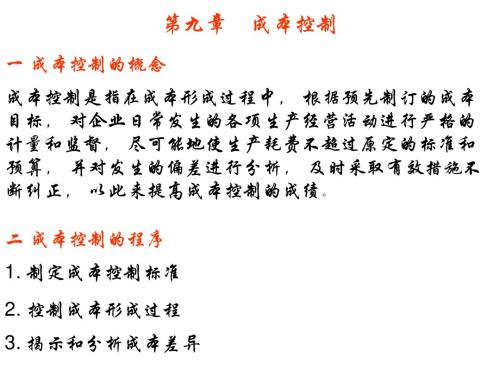 第九章 成本控制
一 成本控制的概念
成本控制是指在成本形成过程中， 根据预先制订的成本
目标， 对企业日常发生的各项生产经营活动进行严格的
计量和监督， 尽可能地使生产耗费不超过原定的标准和
预算， 并对发生的偏差进行分析， 及时采取有效措施不
断纠正， 以此来提高成本控制的成绩。
二 成本控制的程序
1. 制定成本控制标准
2. 控制成本形成过程
3. 揭示和分析成本差异